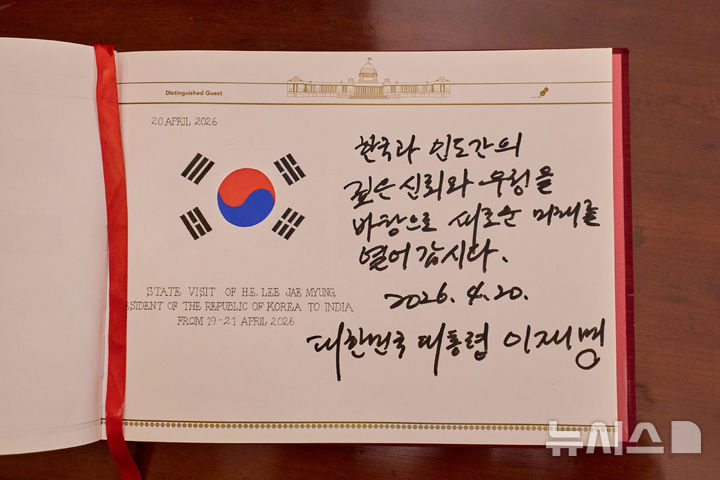 Distinguished Guest
20 APRIL 2026
한국과 인도간의
깊은 신뢰와 우정을
바탕으로 새로운 미래를
열어 갑시다.
2026. 4. 20.
대한민국 대통령 이재명
STATE VISIT OF H.E. LEE JAE MYUNG,
ESIDENT OF THE REPUBLIC OF KOREA TO INDIA
FROM 19-21 APRIL 2026
뉴시스